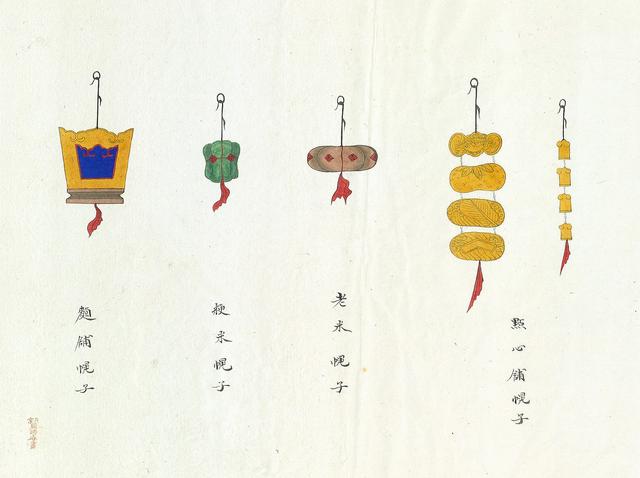 點心舖幌子
老米幌子
粳米幌子
麵舖幌子